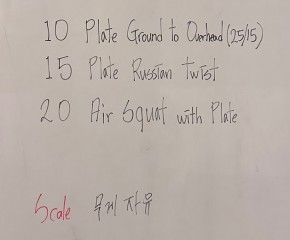 10 Plate Ground to Overhead (25/15)
15 Plate Russian Twist
20 Air Squat with Plate
Scale 무게 자유